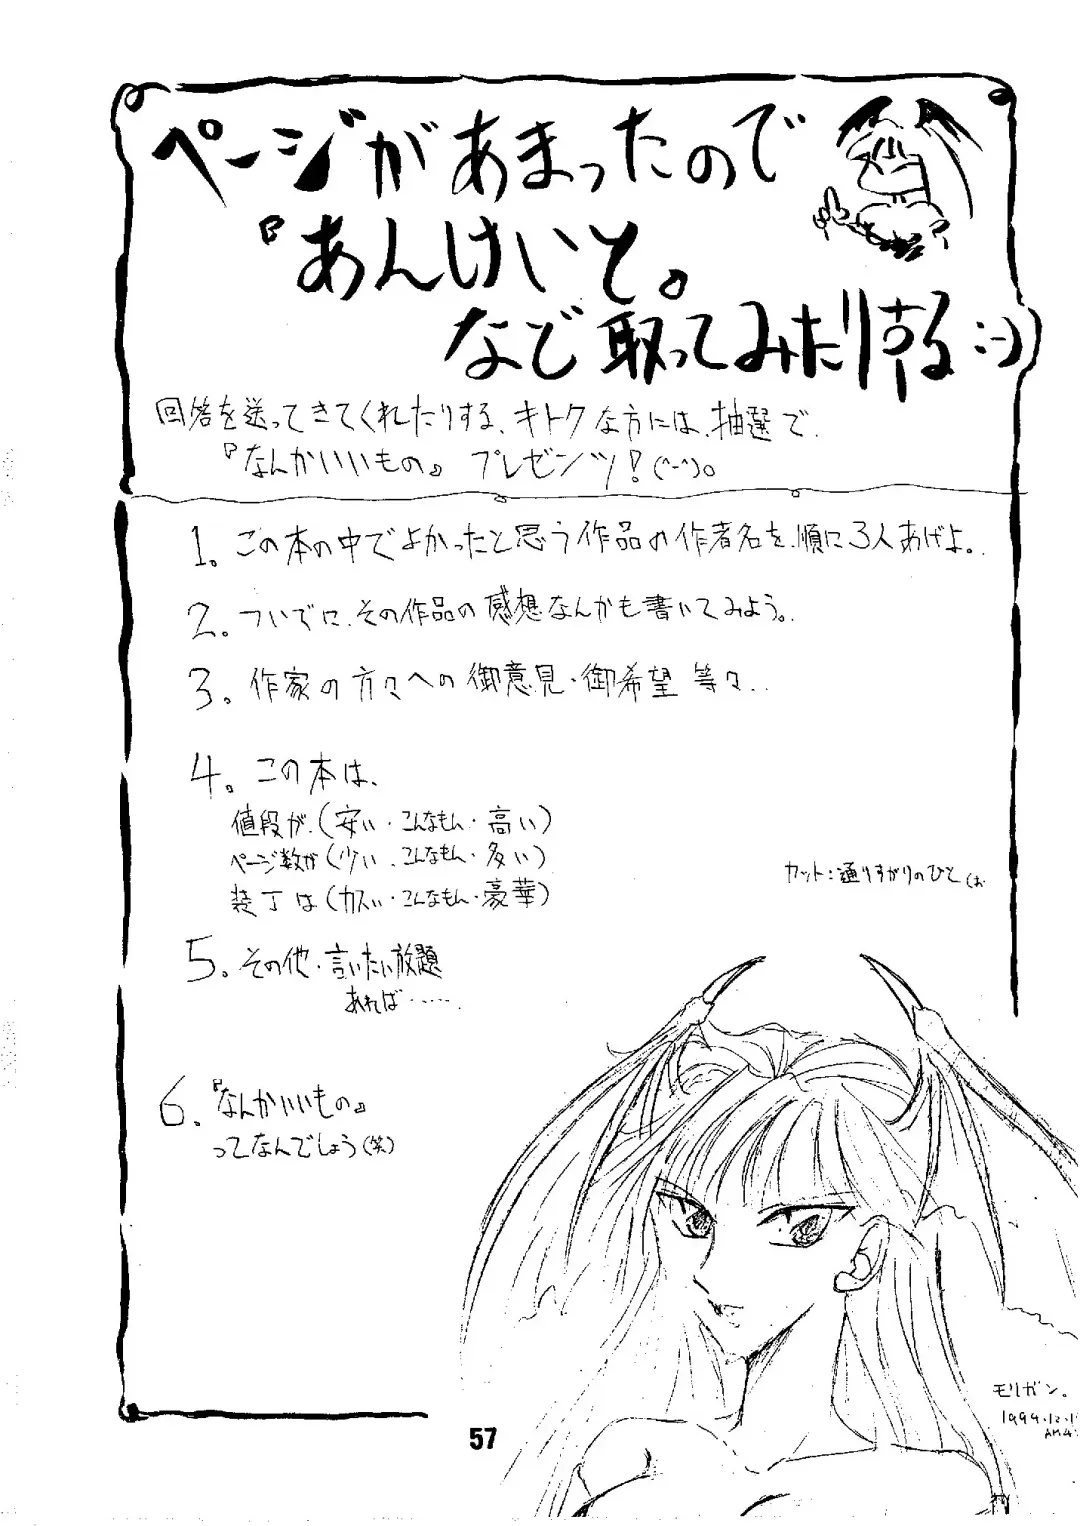 ページがあまったので
『あんけいと。
など取ってみたりする :-)
回答を送ってきてくれたりする、キトクな方には、抽選で、
『なんかいいもの』 プレゼンツ！(^-^)。
1。この本の中でよかったと思う作品の作者名を、順に3人あげよ。
2。ついでに、その作品の感想なんかも書いてみよう。
3。作家の方々への御意見・御希望 等々..
4。この本は、
値段が、(安い・こんなもん・高い)
ページ数が(少い、こんなもん・多い)
装丁は(カスい・こんなもん・豪華)
カット:通りすがりのひと(お
5。その他・言いたい放題
あれば……
6、『なんかいいもの』
ってなんでしょう(笑)
モリガン。
1994.12.1
AM4
57